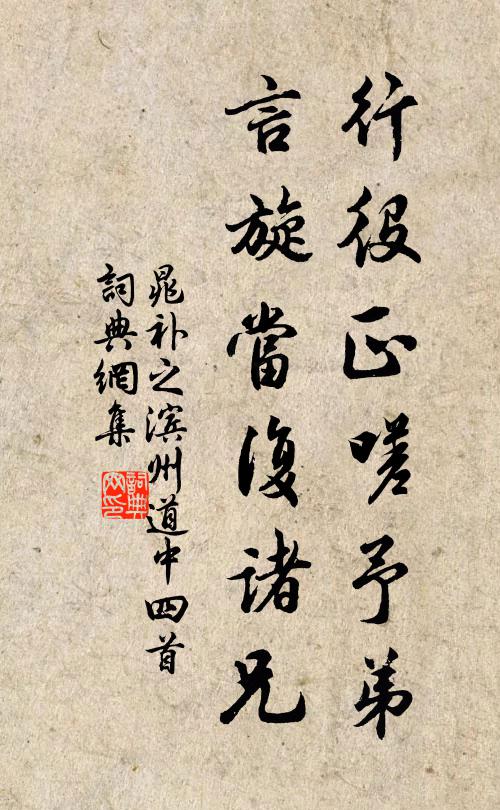 行役正嗟予弟
言旋當復諸兄
晁补之滨州道中四首
詞典網集
詞典
网印